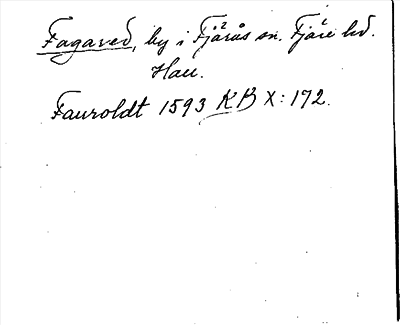 Fagared, by i Fjärås sn. Fjäre hd.
Hall.
Fauroldt 1593 KB X: 172.